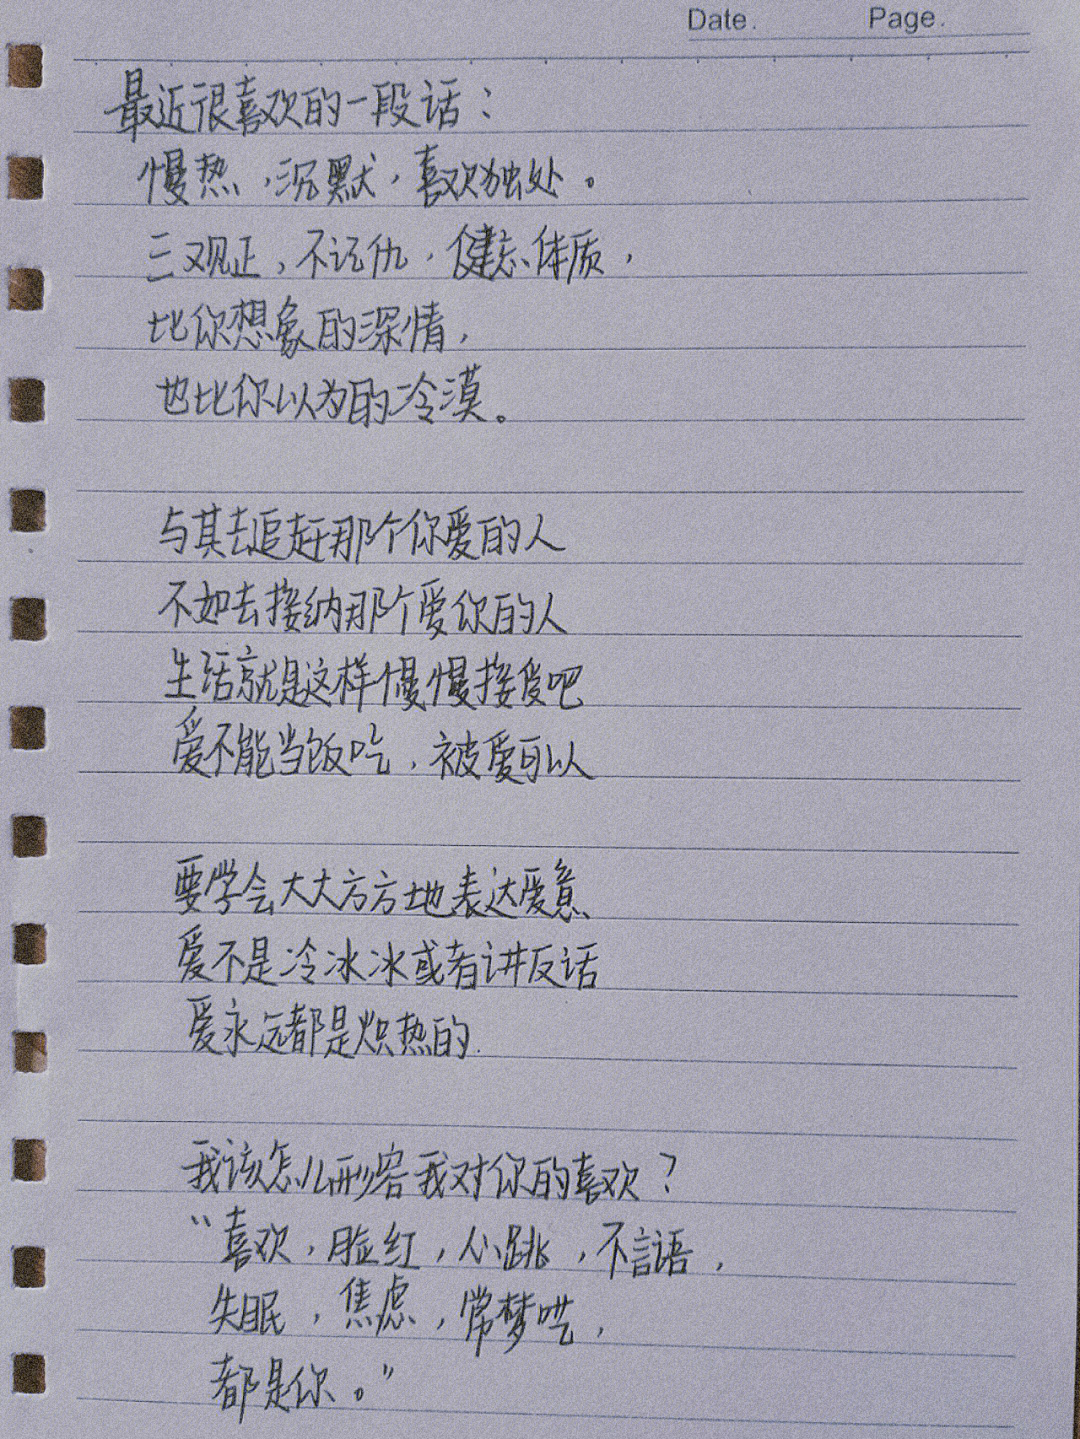 Date. Page.
最近很喜欢的一段话：
慢热，沉默，喜欢独处。
三观正，不记仇，健忘体质，
比你想象的深情，
也比你以为的冷漠。
与其去追赶那个你爱的人
不如去接纳那个爱你的人
生活就是这样慢慢接受吧
爱不能当饭吃，被爱可以
要学会大大方方地表达爱意
爱不是冷冰冰或者讲反话
爱永远都是炽热的.
我该怎么形容我对你的喜欢？
“喜欢，脸红，心跳，不言语，
失眠，焦虑，常梦呓，
都是你。”